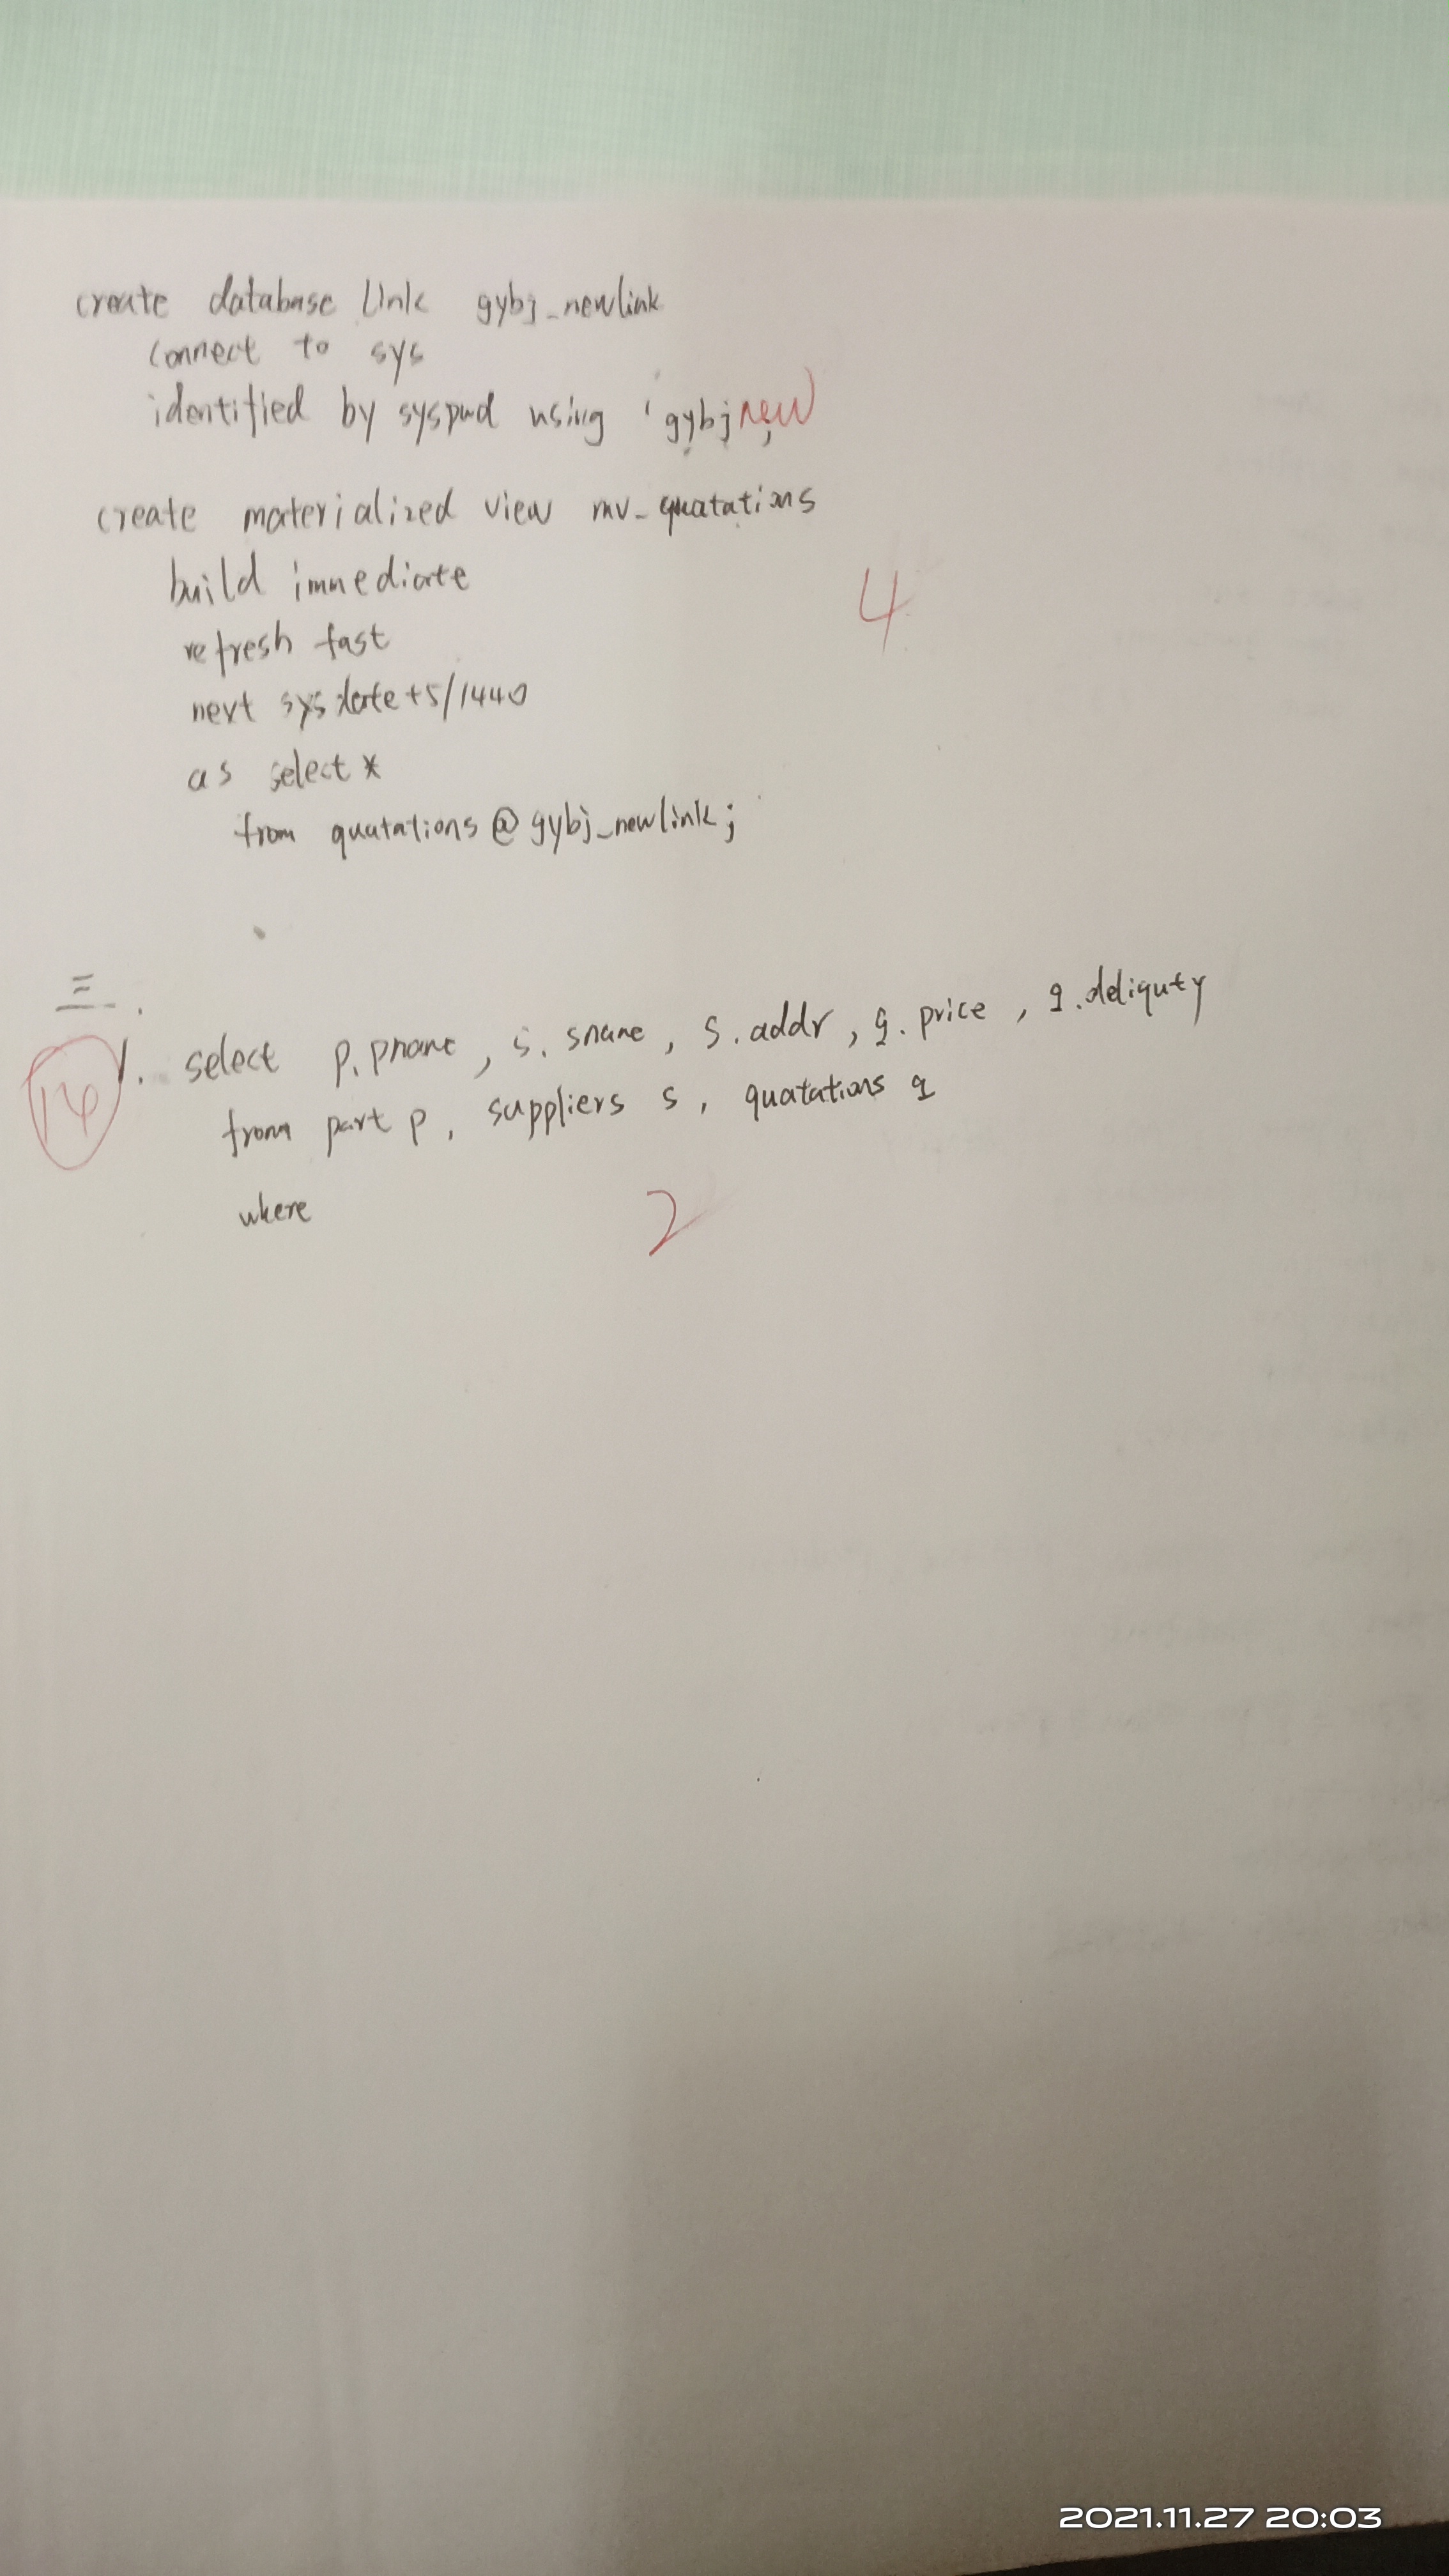 create database link gybj_newlink
connect to sys
identified by syspwd using 'gybjnew;
create materialized view mv_quatations
build immediate
refresh fast
next sysdate+5/1440
as select *
from quatations@gybj_newlink;
4
三.
14
1. select p.pname, s.sname, s.addr, q.price, q.deliquty
from part p, suppliers s, quatations q
where
2
2021.11.27 20:03